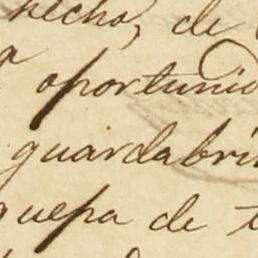 hecho, de
a oportunid
guardabri
quepa de t